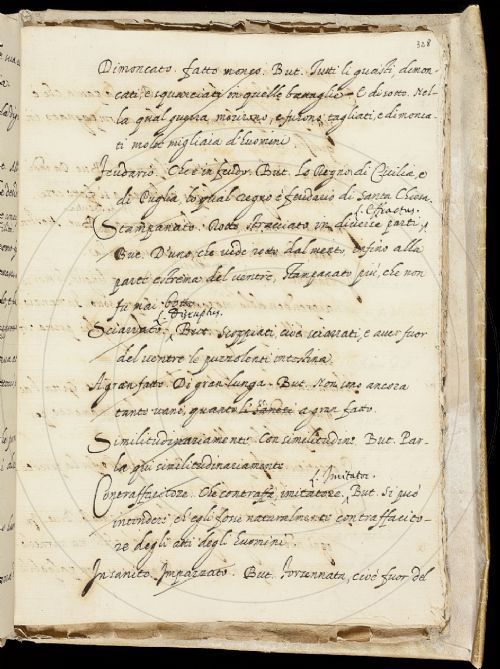 328
Dimoncato. fatto monco. But. Tutti li guasti, dimon-
cati, e squarciati in quelle battaglie. E di sotto. Nel-
la qual guerra moureno, e furono tagliati, e dimonca-
ti molte migliaia d'huomini.
Feudario. Che è in feudo. But. Lo Regno di Cicilia, e
di Puglia, lo qual regno è feudario di Santa Chiesa.
L. Effractus.
Stampanato. Rotto stracciato in diverse parti,
But. D'uno, che vede rotto dal mento, infino alla
parte estrema del ventre, stampanato più, che non
fu mai botte.
L. Disruptus.
Sciarrato. But. Scoppiati, cioè sciarrati, e aver fuor
del ventre le puzzolenti intestina.
A gran fatto. Di gran lunga. But. Non sono ancora
tanto vani, quanto li Sanesi a gran fatto.
Similitudinariamente. Con similitudine. But. Par-
la qui similitudinariamente.
L. Imitator.
Contraffacitore. Che contraffà, imitatore. But. Si può
intendere ch'egli fosse naturalmente contraffacito-
re degli atti degli huomini.
Insanito. Impazzato. But. Forsennata, cioè fuor del